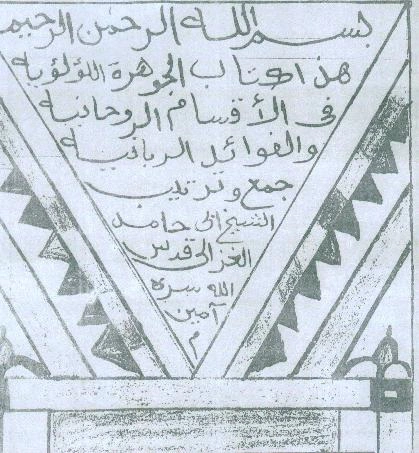 بسم الله الرحمن الرحيم
هذا كتاب الجوهرة اللؤلؤية
في الأقسام الروحانية
والفوائد الربانية
جمع وترتيب
الشيخ ابى حامد
الغزالى قدس
الله سره
آمين
م